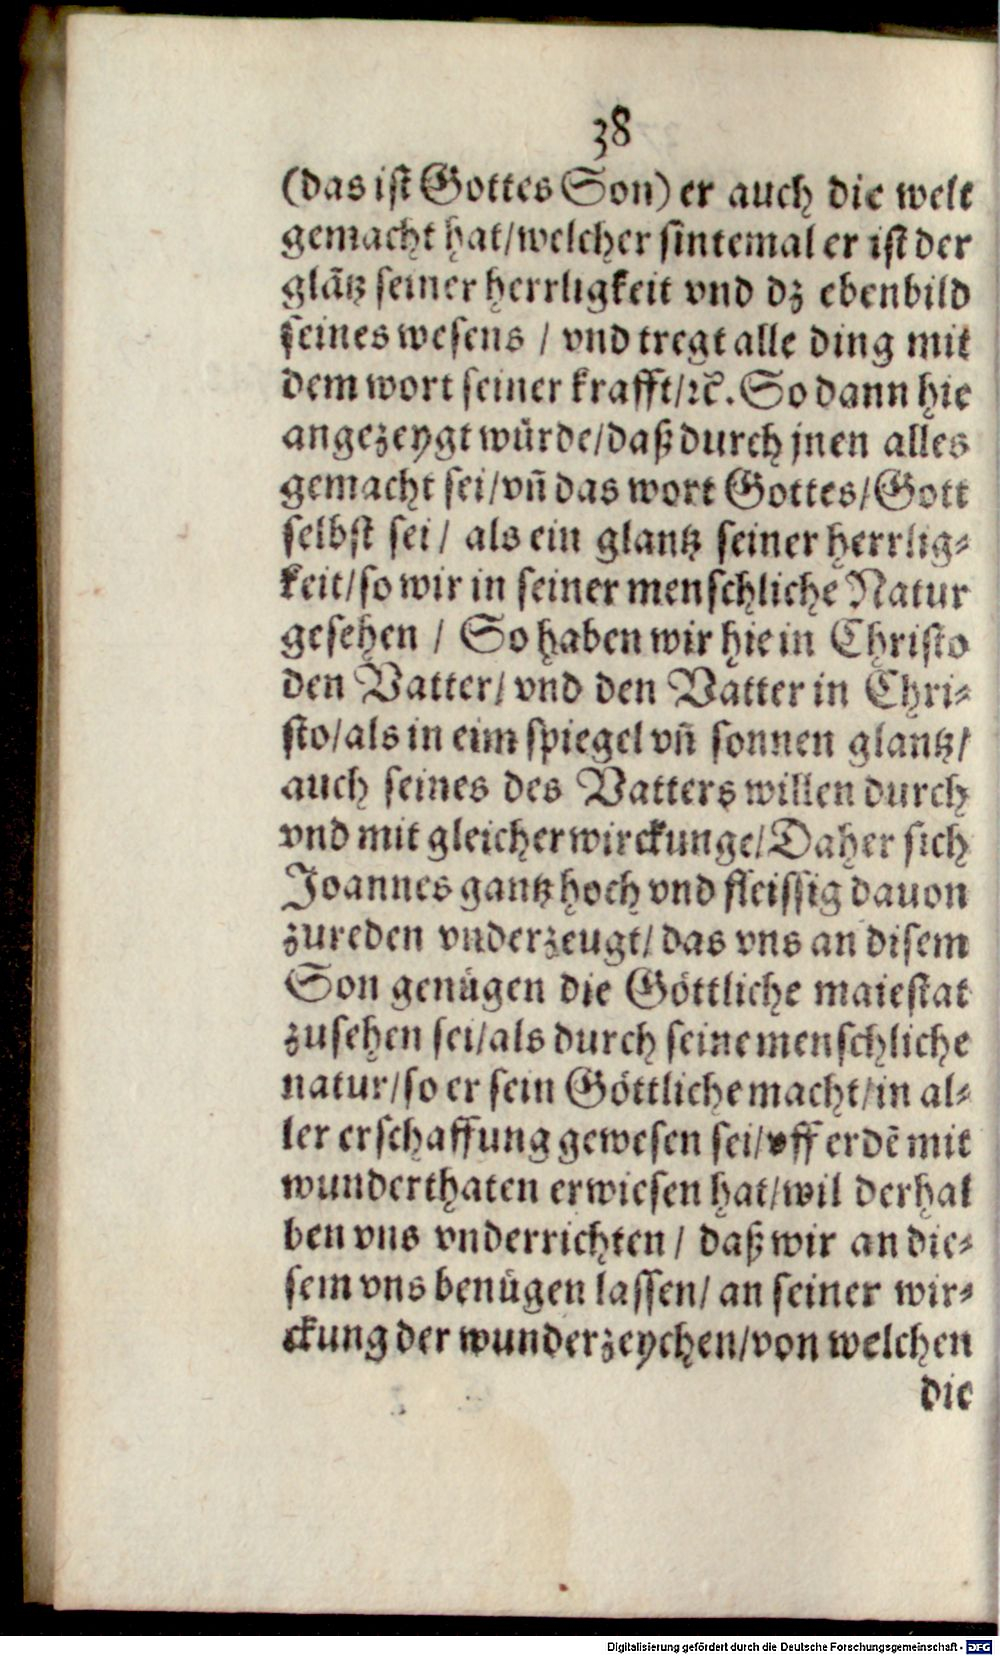 38
(das ist Gottes Son) er auch die welt
gemacht hat/welcher sintemal er ist der
glãtz seiner herrligkeit vnd dz ebenbild
seines wesens / vnd tregt alle ding mit
dem wort seiner krafft/ꝛc̃. So dann hie
angezeygt würde/daß durch jnen alles
gemacht sei/vñ das wort Gottes/Gott
selbst sei/ als ein glantz seiner herrlig-
keit/so wir in seiner menschliche Natur
gesehen / So haben wir hie in Christo
den Vatter/ vnd den Vatter in Chri-
sto/als in eim spiegel vñ sonnen glantz/
auch seines des Vatters willen durch
vnd mit gleicher wirckunge/Daher sich
Joannes gantz hoch vnd fleissig dauon
zureden vnderzeugt/ das vns an disem
Son genügen die Göttliche maiestat
zusehen sei/als durch seine menschliche
natur/so er sein Göttliche macht/in al-
ler erschaffung gewesen sei/vff erdẽ mit
wunderthaten erwiesen hat/wil derhal
ben vns vnderrichten / daß wir an die-
sem vns benügen lassen/ an seiner wir-
ckung der wunderzeychen/von welchen
die
Digitalisierung gefördert durch die Deutsche Forschungsgemeinschaft - DFG